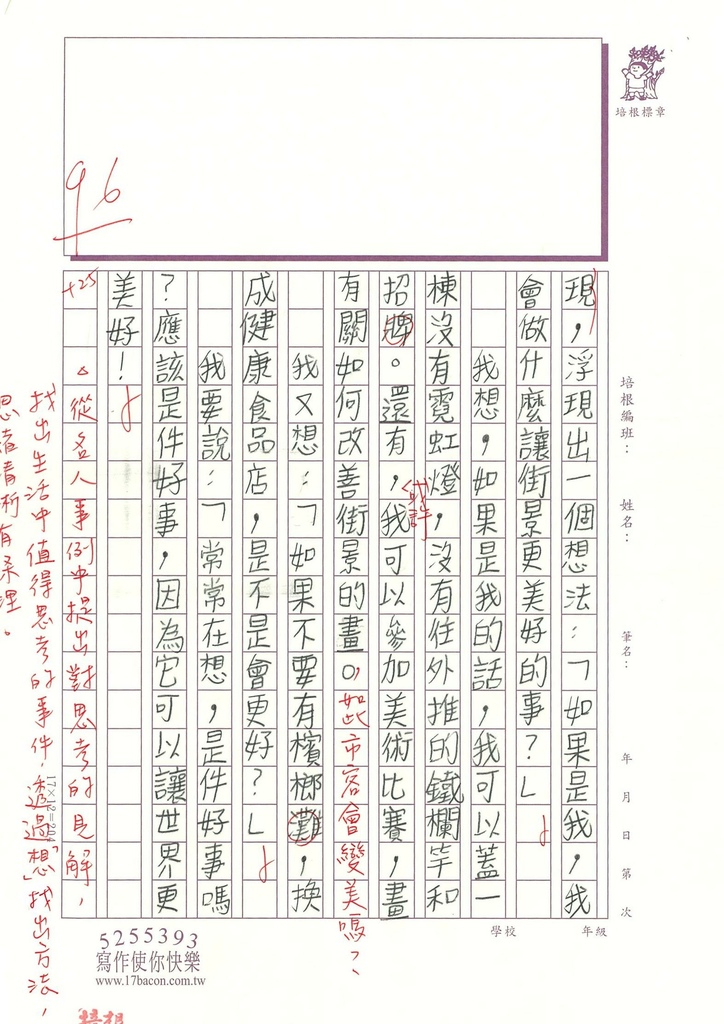 培根標章
96
現，浮現出一個想法：「如果是我，我
會做什麼讓街景更美好的事？」
我想，如果是我的話，我可以蓋一
棟沒有霓虹燈，沒有往外推的鐵欄竿和
招牌。還有，我可以參加美術比賽，畫
或許
有關如何改善街景的畫。，如此市容會變美嗎？、
我又想：「如果不要有檳榔灘，換
成健康食品店，是不是會更好？」
我要說：「常常在想，是件好事嗎
？應該是件好事，因為它可以讓世界更
美好！
+25
從各人事例中提出對思考的見解，
找出生活中值得思考的事件，透過「想」找出方法，
思緒清晰有条理。
17×12=204
培根編班：
姓名：
筆名：
年 月 日 第 次
學校
年級
5255393
寫作使你快樂
www.17bacon.com.tw
培根